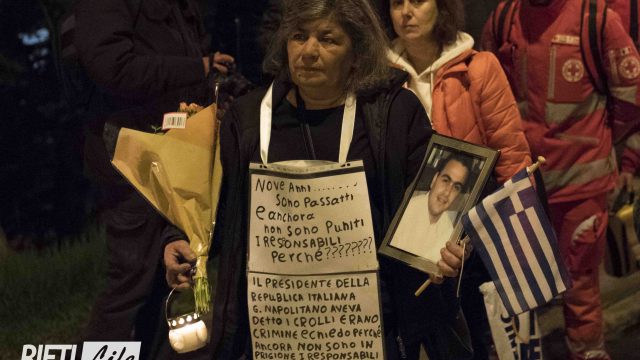 NOVE ANNI.......
SONO PASSATI
E ANCHORA
NON SONO PUNITI
I RESPONSABILI
PERCHÉ????????
IL PRESIDENTE DELLA
REPUBBLICA ITALIANA
G. NAPOLITANO AVEVA
DETTO I CROLLI ERANO
CRIMINE E CHIEDO PERCHÉ
ANCORA NON SONO IN
PRIGIONE I RESPONSABILI
RIETI Life